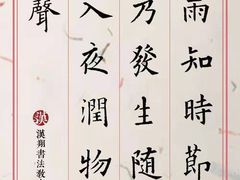 雨知時節
乃發生随
入夜潤物
聲
漢翔書法教